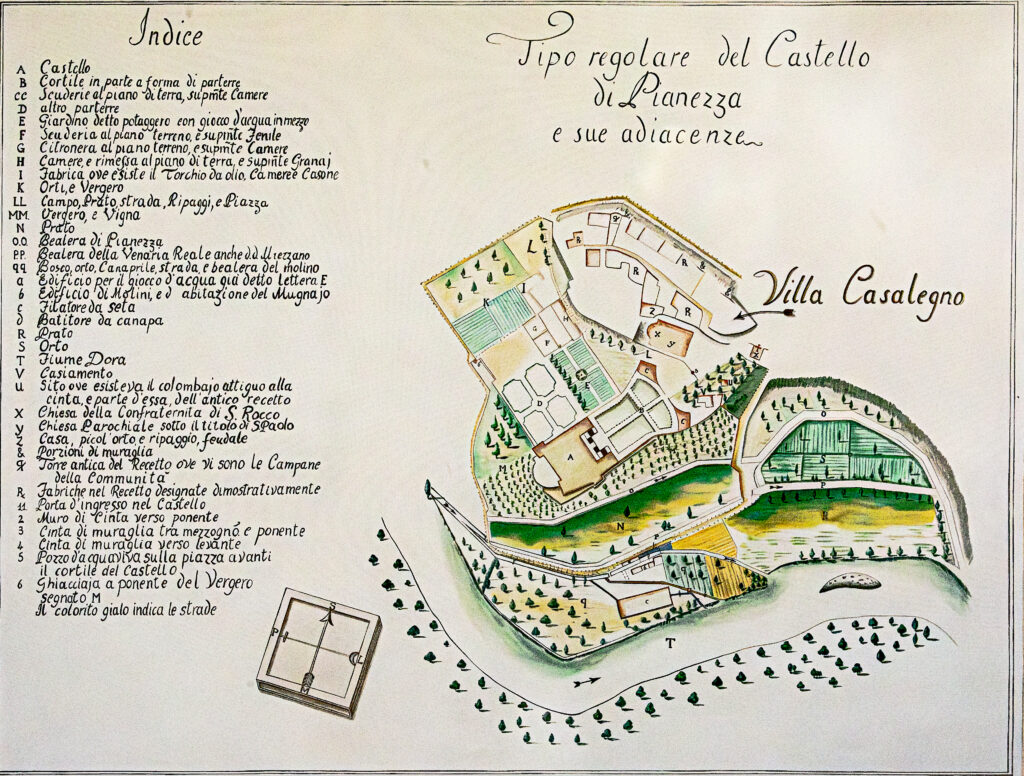 Indice
A Castello
B Cortile in parte a forma di parterre
CC Scuderie al piano di terra, e supnte Camere
D altro parterre
E Giardino detto potaggero con giocco d'acqua in mezzo
F Scuderia al piano terreno, e supnte Fenile
G Citronera al piano terreno, e supnte Camere
H Camere, e rimessa al piano di terra, e supnte Granaj
I Fabrica ove esiste il Torchio da olio, Camere e Casone
K Orti, e Vergero
LL Campo, Prato, strada, Ripaggi, e Piazza
MM. Vergero, e Vigna
N Prato
O.O. Bealera di Pianezza
PP. Bealera della Venaria Reale anche dd
qq Bosco, orto, Canaprile, strada, e bealera del molino
a Edificio per il giocco d'acqua già detto lettera E
b Edificio di Molini, e d'abitazione del Mugnajo
c Filatore da seta
d Batitore da canapa
R Prato
S Orto
T Fiume Dora
V Casiamento
u Sito ove esisteva il colombajo attiguo alla
cinta, e parte d'essa, dell'antico recetto
X Chiesa della Confraternita di S. Rocco
y Chiesa Parochiale sotto il titolo di S Paolo
Z Casa, picol'orto e ripaggio, feudale
& Porzioni di muraglia
Torre antica del Recetto ove vi sono le Campane
della Communità
R Fabriche nel Recetto designate dimostrativamente
11 Porta d'ingresso nel Castello
2 Muro di Cinta verso ponente
3 Cinta di muraglia tra mezzogno e ponente
4 Cinta di muraglia verso levante
5 Pozzo d'acqua viva sulla piazza avanti
il cortile del Castello
6 Ghiacciaja a ponente del Vergero
segnato M
Il colorito gialo indica le strade
Tipo regolare del Castello
di Pianezza
e sue adiacenze
Villa Casalegno
L
K
I
H
G
F
R
&
R
Z
R
X y
L
C
E
D
B
A
M
O
N
P
O
S
P
q
c
T
S
P
L
M